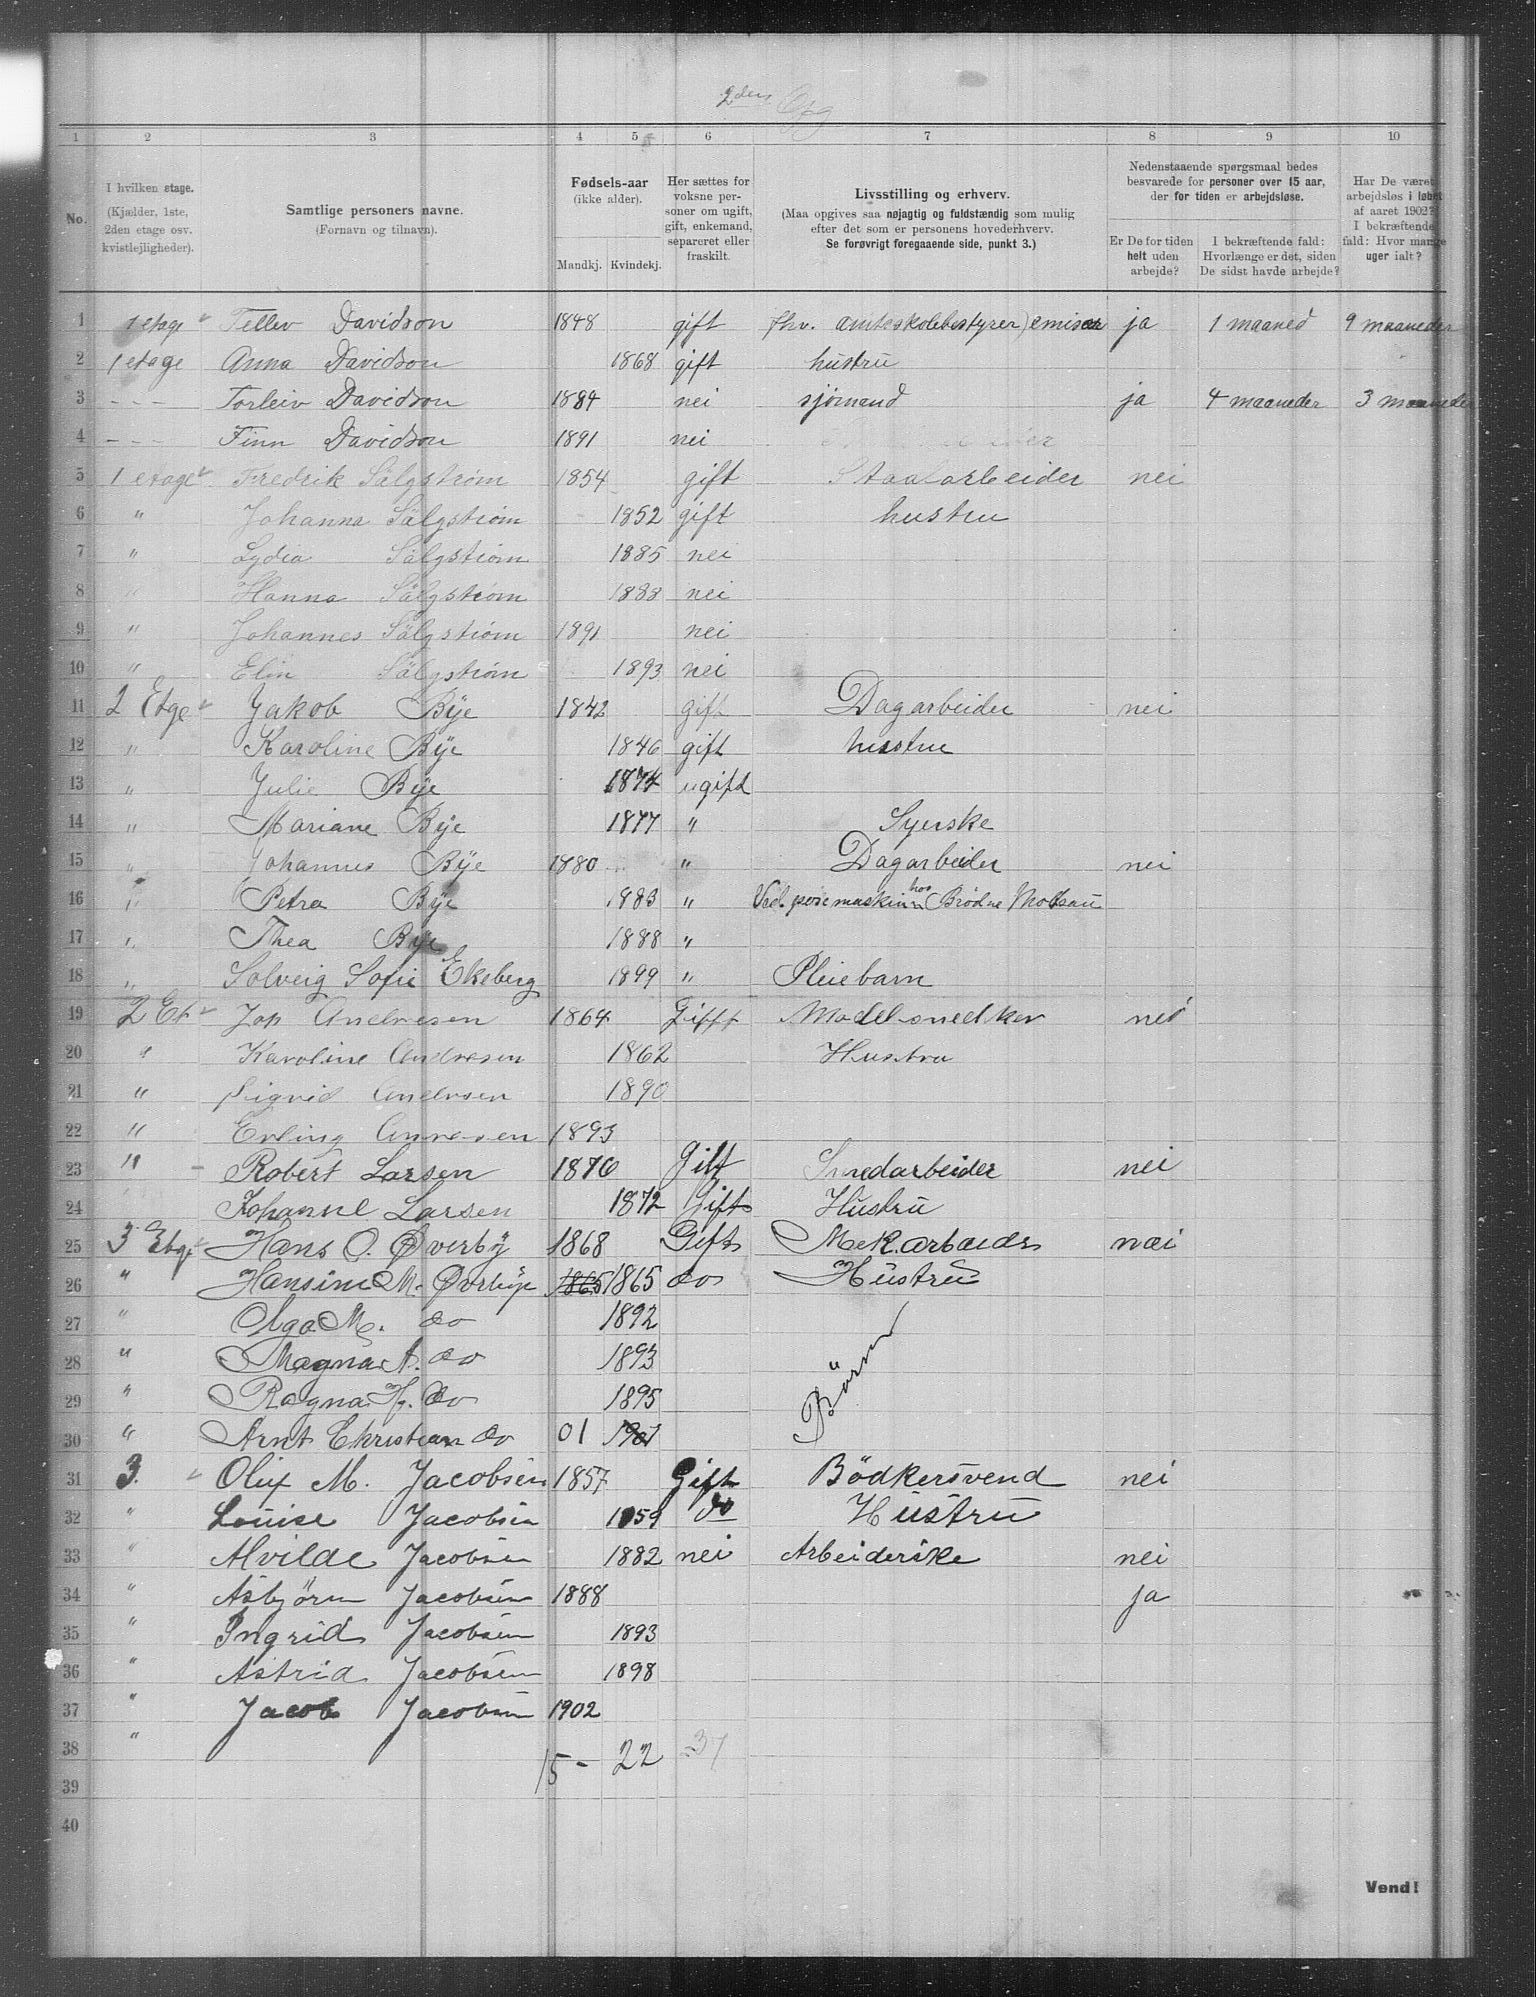 2den Opg
1 2 3 4 5 6 7 8 9 10
No.
I hvilken etage.
(Kjælder, 1ste,
2den etage osv.
kvistlejligheder).
Samtlige personers navne.
(Fornavn og tilnavn).
Fødsels-aar
(ikke alder).
Mandkj. Kvindekj.
Her sættes for
voksne per-
soner om ugift,
gift, enkemand,
separeret eller
fraskilt.
Livsstilling og erhverv.
(Maa opgives saa nøjagtig og fuldstændig som mulig
efter det som er personens hovederhverv.
Se forøvrigt foregaaende side, punkt 3.)
Nedenstaaende spørgsmaal bedes
besvarede for personer over 15 aar,
der for tiden er arbejdsløse.
Er De for tiden
helt uden
arbejde?
I bekræftende fald:
Hvorlænge er det, siden
De sidst havde arbejde?
Har De været
arbejdsløs i løbet
af aaret 1902?
I bekræftende
fald: Hvor mange
uger ialt?
1 1 etage Tellev Davidson 1848 gift fhv. amtsskolebestyrer, emisær ja 1 maaned 9 maaneder
2 1 etage Anna Davidson 1868 gift hustru
3 - - - Torleiv Davidson 1884 nei sjömand ja 4 maaneder 3 maaneder
4 - - - Finn Davidson 1891 nei
5 1 etage Fredrik Sälgström 1854 gift Staalarbeider nei
6 " Johanna Sälgström 1852 gift hustru
7 " Lydia Sälgström 1885 nei
8 " Hanna Sälgström 1888 nei
9 " Johannes Sälgström 1891 nei
10 " Elin Sälgström 1893 nei
11 2 Etge Jakob Bÿe 1842 gift Dagarbeider nei
12 " Karoline Bÿe 1846 gift hustru
13 " Julie Bÿe 1874 ugift
14 " Mariane Bÿe 1877 " Syerske
15 " Johannes Bÿe 1880 " Dagarbeider nei
16 " Petra Bÿe 1883 " Ved posemaskinen hos Brødne
17 " Thea Bÿe 1888 "
18 " Solveig Sofie Ekeberg 1899 " Pleiebarn
19 2 Et Jap Andresen 1864 Gift Modelsnedker nei
20 " Karoline Andresen 1862 Hustru
21 " Sigrid Andresen 1890
22 " Erling Andresen 1893
23 " - Robert Larsen 1876 Gift Smedarbeider nei
24 Johanne Larsen 1872 Gift Hustru
25 3 Etge Hans O. Øverbÿ 1868 Gift Mek. arbeider nei
26 " Hansine M. Øverbÿe 1865 1865 do Hustru
27 " Olga M. do 1892
28 " Magna A. do 1893
29 " Ragna H. do 1895 Börn
30 " Arnt Christian do 01 1901
31 3. Oluf M. Jacobsen 1857 Gift Bödkersvend nei
32 " Louise Jacobsen 1859 do Hustru
33 " Alvilde Jacobsen 1882 nei Arbeiderske nei
34 " Asbjörn Jacobsen 1888 ja
35 " Ingrid Jacobsen 1893
36 " Astrid Jacobsen 1898
37 " Jacob Jacobsen 1902
38 "
15 - 22 37
39
40
Vend!